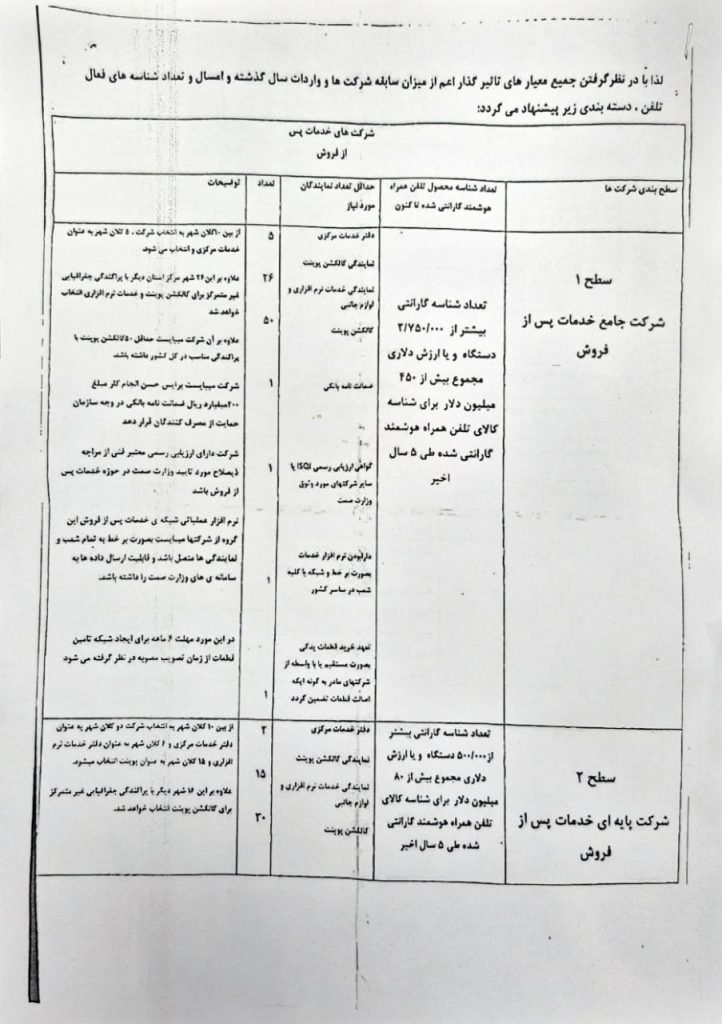 لذا با در نظر گرفتن جمیع معیار های تاثیر گذار اعم از میزان سابقه شرکت ها و واردات سال گذشته و امسال و تعداد شناسه های فعال
تلفن ، دسته بندی زیر پیشنهاد می گردد:
شرکت های خدمات پس
از فروش
سطح بندی شرکت ها
تعداد شناسه محصول تلفن همراه
هوشمند گارانتی شده تا کنون
حداقل تعداد نمایندگان
مورد نیاز
تعداد
توضیحات
سطح ۱
شرکت جامع خدمات پس از
فروش
تعداد شناسه گارانتی
بیشتر از ۲/۷۵۰/۰۰۰
دستگاه و یا ارزش دلاری
مجموع بیش از ۴۵۰
میلیون دلار برای شناسه
کالای تلفن همراه هوشمند
گارانتی شده طی ۵ سال
اخیر
دفتر خدمات مرکزی
نمایندگی کالکشن پوینت
نمایندگی خدمات نرم افزاری و
لوازم جانبی
کالکشن پوینت
ضمانت نامه بانکی
گواهی ارزیابی رسمی ISQI یا
سایر شرکتهای مورد وثوق
وزارت صمت
دارابودن نرم افزار خدمات
بصورت بر خط و شبکه با کلیه
شعب در سراسر کشور
تعهد خرید قطعات یدکی
بصورت مستقیم یا با واسطه از
شرکتهای مادر به گونه ایکه
اصالت قطعات تضمین گردد
۵
۲۶
۵۰
۱
۱
۱
۱
از بین ۱۰کلان شهر به انتخاب شرکت ، ۵ کلان شهر به عنوان
خدمات مرکزی و انتخاب می شود.
علاوه بر این ۲۶ شهر مرکز استان دیگر با پراکندگی جغرافیایی
غیر متمرکز برای کالکشن پوینت و خدمات نرم افزاری انتخاب
خواهد شد
علاوه بر آن شرکت میبایست حداقل ۵۰کالکشن پوینت با
پراکندگی مناسب در کل کشور داشته باشد.
شرکت میبایست برایس حسن انجام کار مبلغ
۲۰۰میلیارد ریال ضمانت نامه بانکی در وجه سازمان
حمایت از مصرف کنندگان قرار دهد
شرکت دارای ارزیابی رسمی معتبر فنی از مراجه
ذیصلاح مورد تایید وزارت صمت در حوزه خدمات پس
از فروش باشد
نرم افزار عملیاتی شبکه ی خدمات پس از فروش این
گروه از شرکتها میبایست بصورت بر خط به تمام شعب و
نمایندگی ها متصل باشد و قابلیت ارسال داده ها به
سامانه ی های وزارت صمت را داشته باشد.
در این مورد مهلت ۶ ماهه برای ایجاد شبکه تامین
قطعات از زمان تصویب مصوبه در نظر گرفته می شود
سطح ۲
شرکت پایه ای خدمات پس از
فروش
تعداد شناسه گارانتی بیشتر
از ۵۰۰/۰۰۰ دستگاه و یا ارزش
دلاری مجموع بیش از ۸۰
میلیون دلار برای شناسه کالای
تلفن همراه هوشمند گارانتی
شده طی ۵ سال اخیر
دفتر خدمات مرکزی
نمایندگی کالکشن پوینت
نمایندگی خدمات نرم افزاری و
لوازم جانبی
کالکشن پوینت
۲
۱۵
۳۰
از بین ۱۰ کلان شهر به انتخاب شرکت دو کلان شهر به عنوان
دفتر خدمات مرکزی و ۶ کلان شهر به عنوان دفتر خدمات نرم
افزاری و ۱۵ کلان شهر به عنوان پوینت انتخاب میشود.
علاوه بر این ۱۶ شهر دیگر با پراکندگی جغرافیایی غیر متمرکز
برای کالکشن پوینت انتخاب خواهد شد.